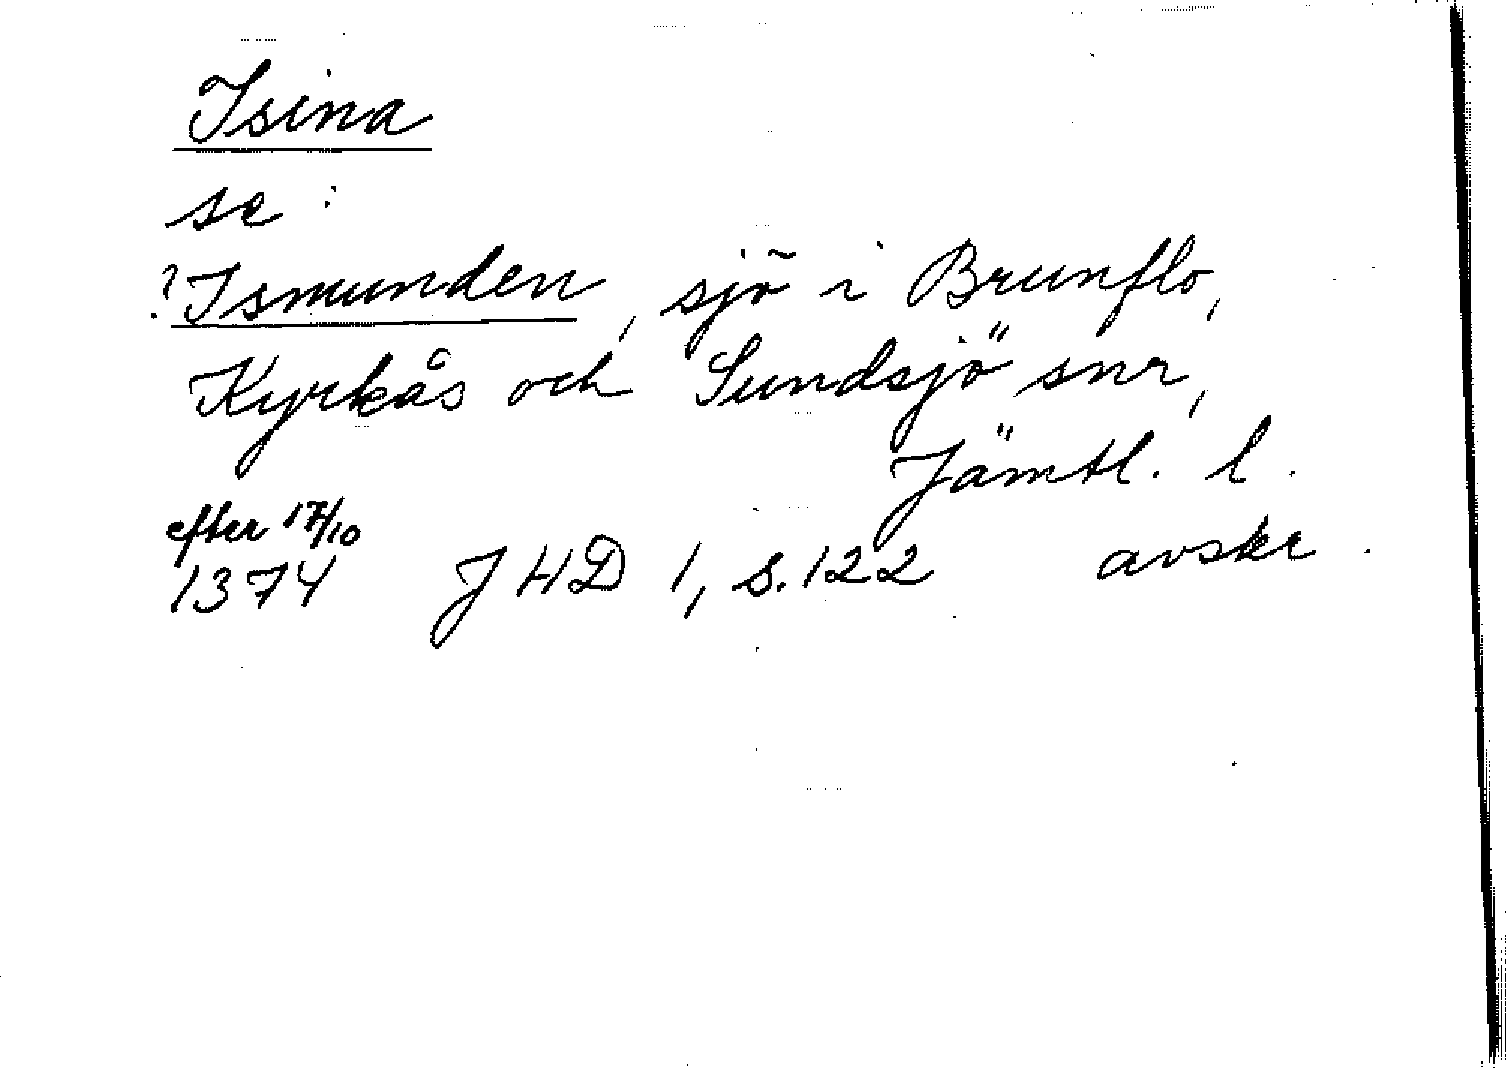 Isina
se :
? Ismunden, sjö i Brunflo,
Kyrkås och Sundsjö snr,
Jämtl. l.
efter 17/10
1374 JHD 1, s. 122 avskr.